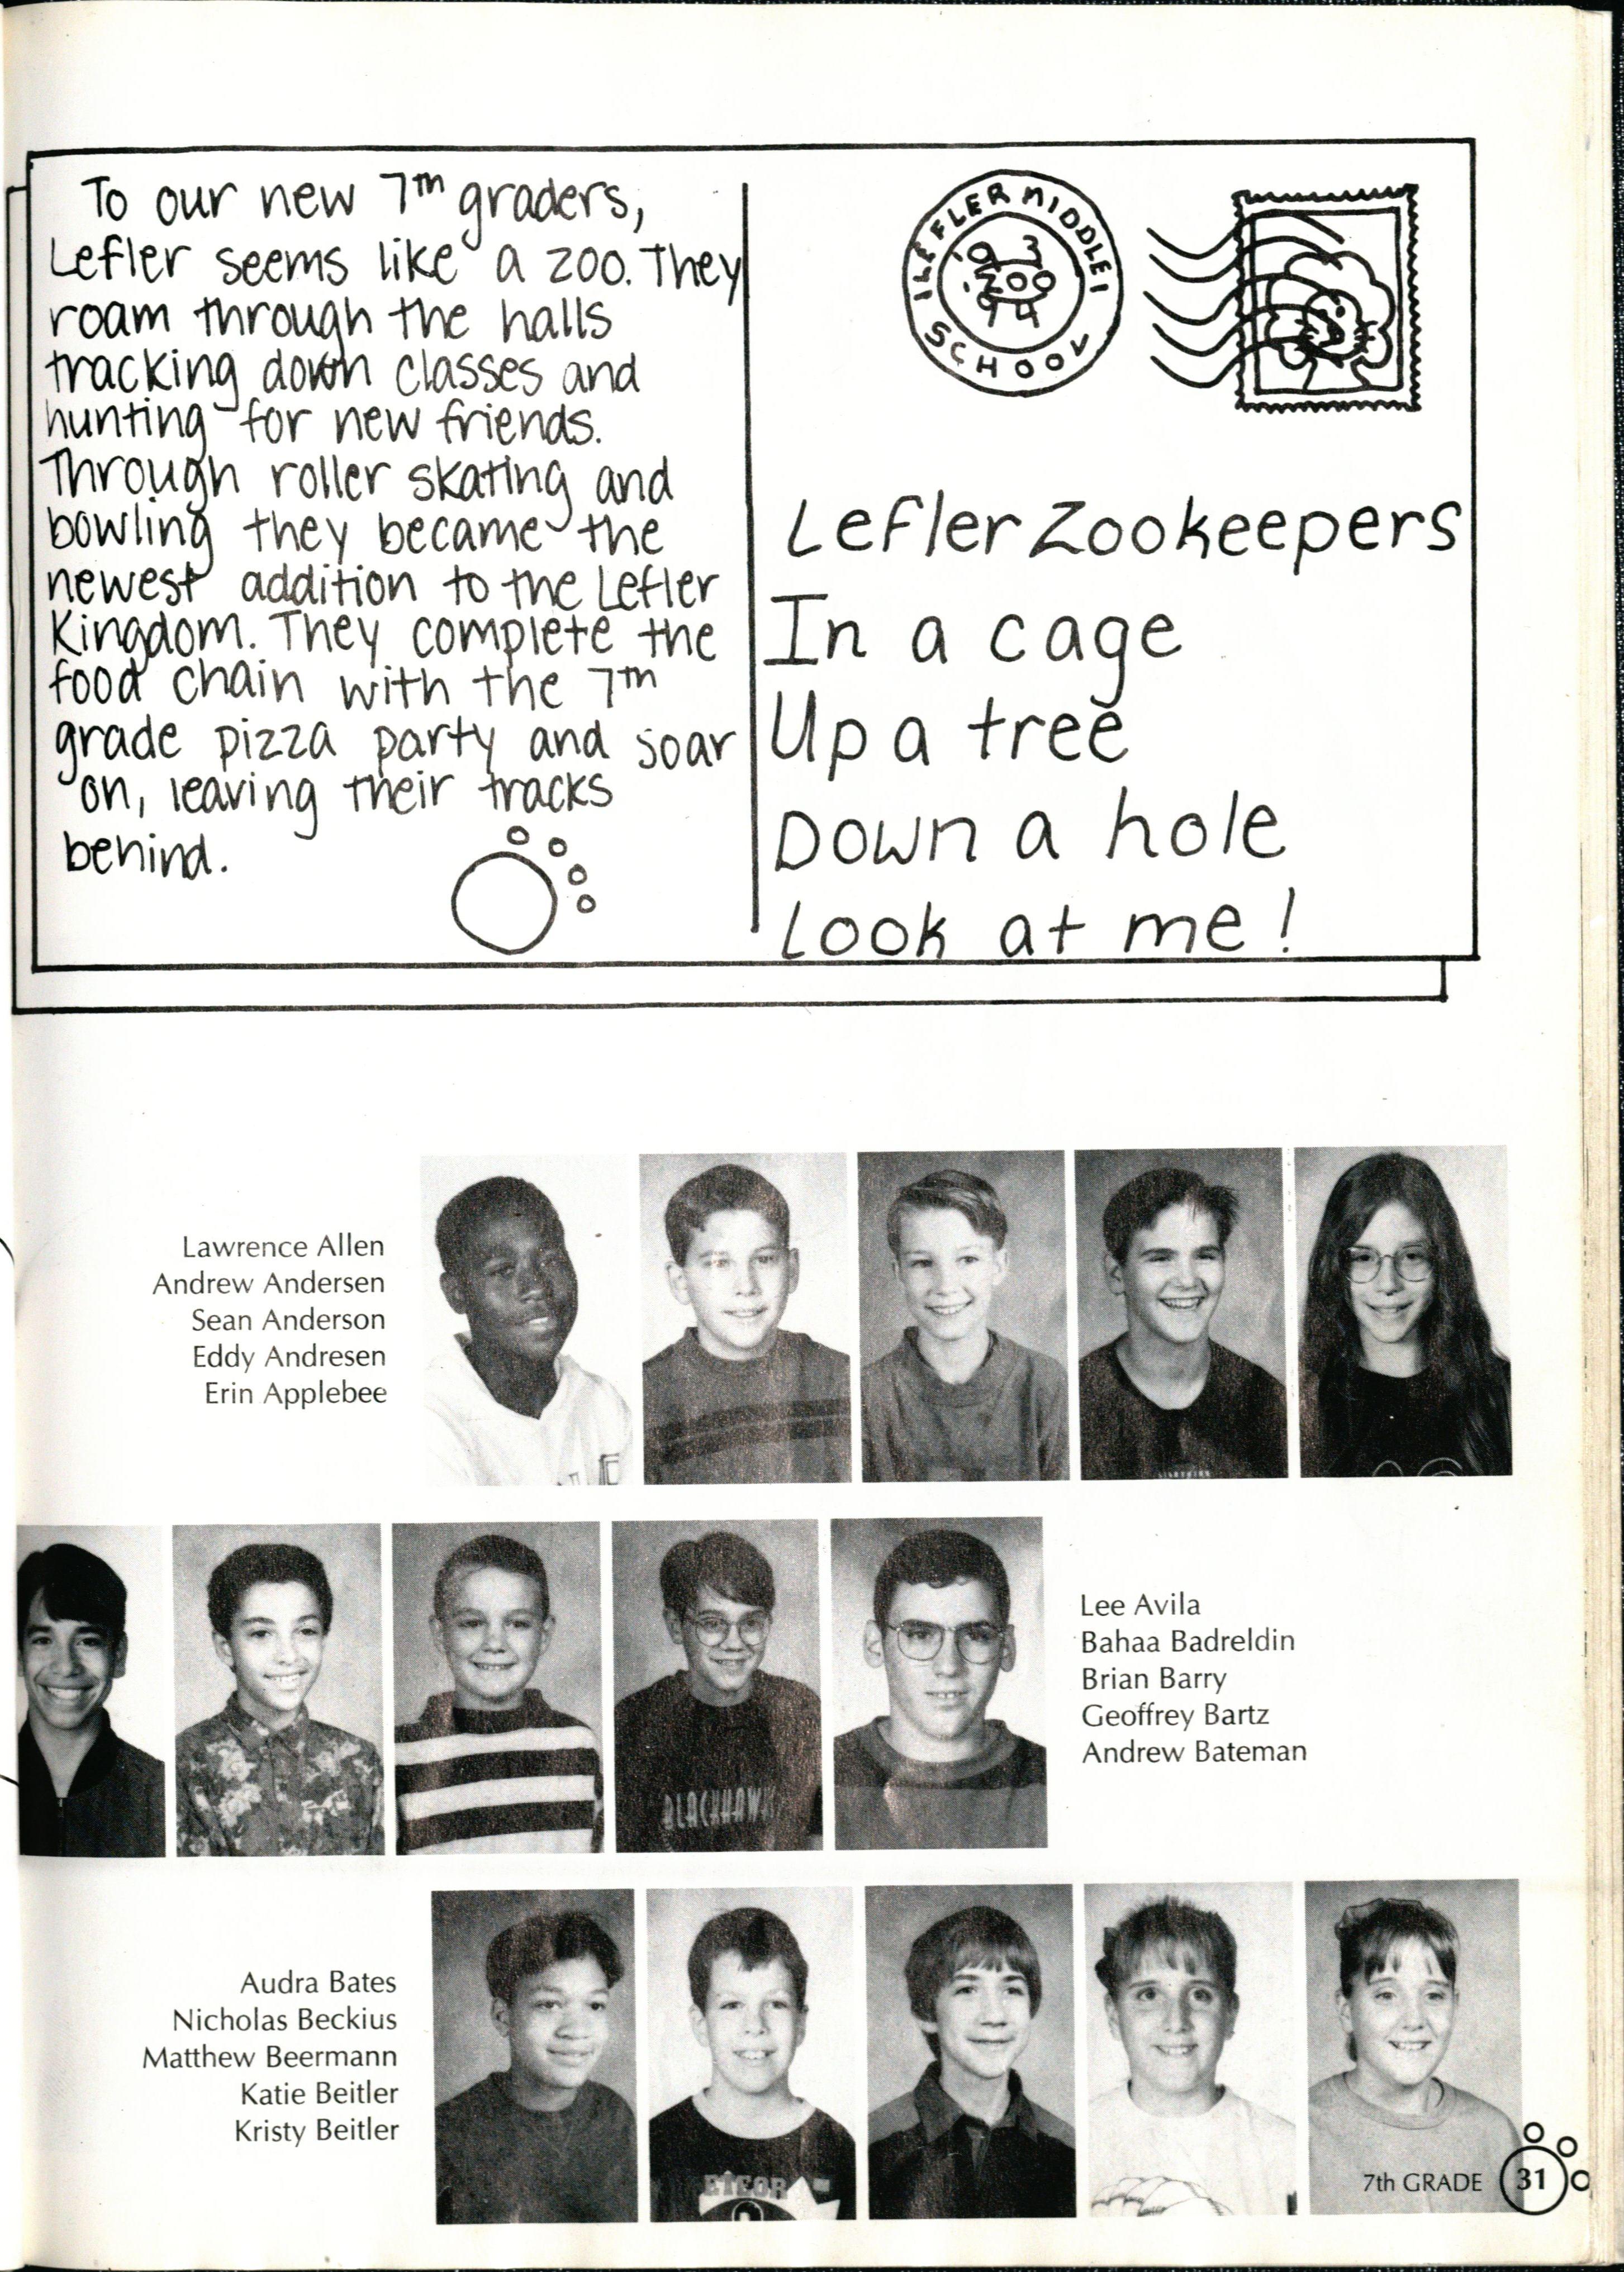 To our new 7th graders,
Lefler seems like a zoo. They
roam through the halls
tracking down classes and
hunting for new friends.
Through roller skating and
bowling they became the
newest addition to the Lefler
Kingdom. They complete the
food chain with the 7th
grade pizza party and soar
on, leaving their tracks
behind.
LEFLER MIDDLE
SCHOOL
ZOO
Lefler Zookeepers
In a cage
Up a tree
Down a hole
Look at me!
Lawrence Allen
Andrew Andersen
Sean Anderson
Eddy Andresen
Erin Applebee
BLACKHAWKS
Lee Avila
Bahaa Badreldin
Brian Barry
Geoffrey Bartz
Andrew Bateman
Audra Bates
Nicholas Beckius
Matthew Beermann
Katie Beitler
Kristy Beitler
ETEOR
7th GRADE 31